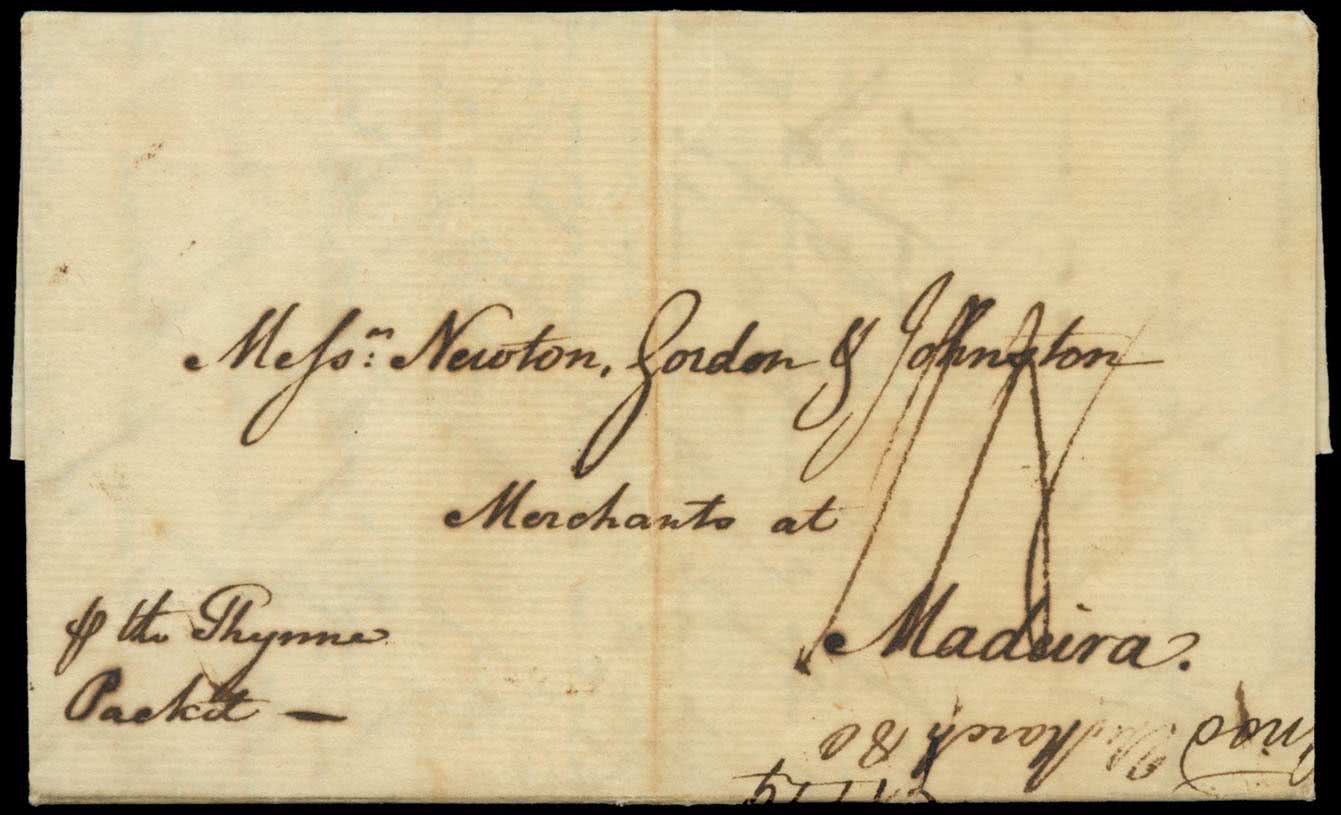 Messrs: Newton, Gordon & Johnston
Merchants at
Madeira.
⅌ the Thynne
Packet —
March 180